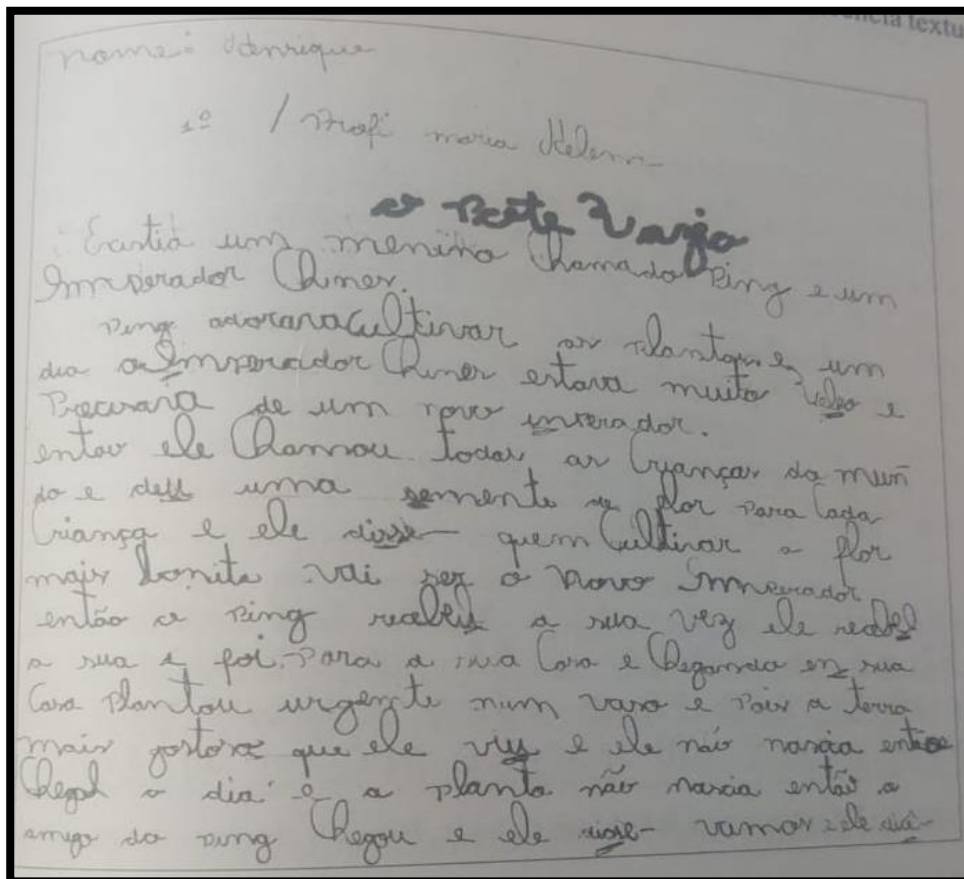 ência textu
nome: Henrique
1º / Profi maria Helena
o Pote Vazio
Existia um menino chamado Ping e um
Imperador Chines.
Ping adorava cultivar as plantas e um
dia o Imperador Chines estava muito velho e
Precisava de um novo imperador.
entao ele chamou todas as crianças do mun
do e deu uma semente de flor Para cada
criança e ele disse- quem cultivar a flor
mais bonita vai ser o novo Imperador
então o Ping a sua vez ele
a sua e foi Para a sua casa e chegando em sua
casa Plantou urgente num vaso e Pois a terra
mais gostosa que ele viu e ele não nascia
o dia e a Planta não nascia então o
amigo do Ping chegou e ele disse- vamos ele